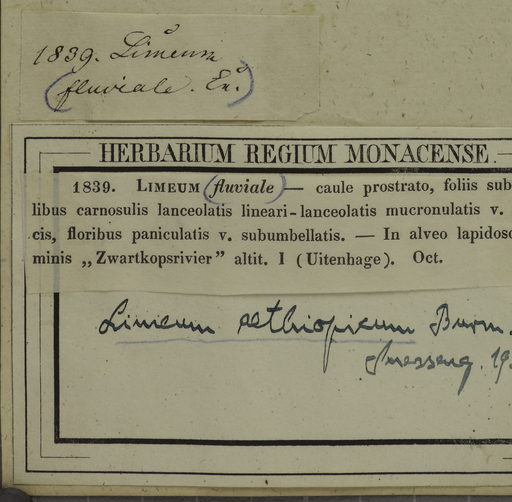 1839. Limeum
(fluviale. Ex.)
HERBARIUM REGIUM MONACENSE.
1839. LIMEUM (fluviale) — caule prostrato, foliis sub
libus carnosulis lanceolatis lineari-lanceolatis mucronulatis v.
cis, floribus paniculatis v. subumbellatis. — In alveo lapidoso
minis „Zwartkopsrivier" altit. I (Uitenhage). Oct.
Limeum aethiopicum Burm.
19